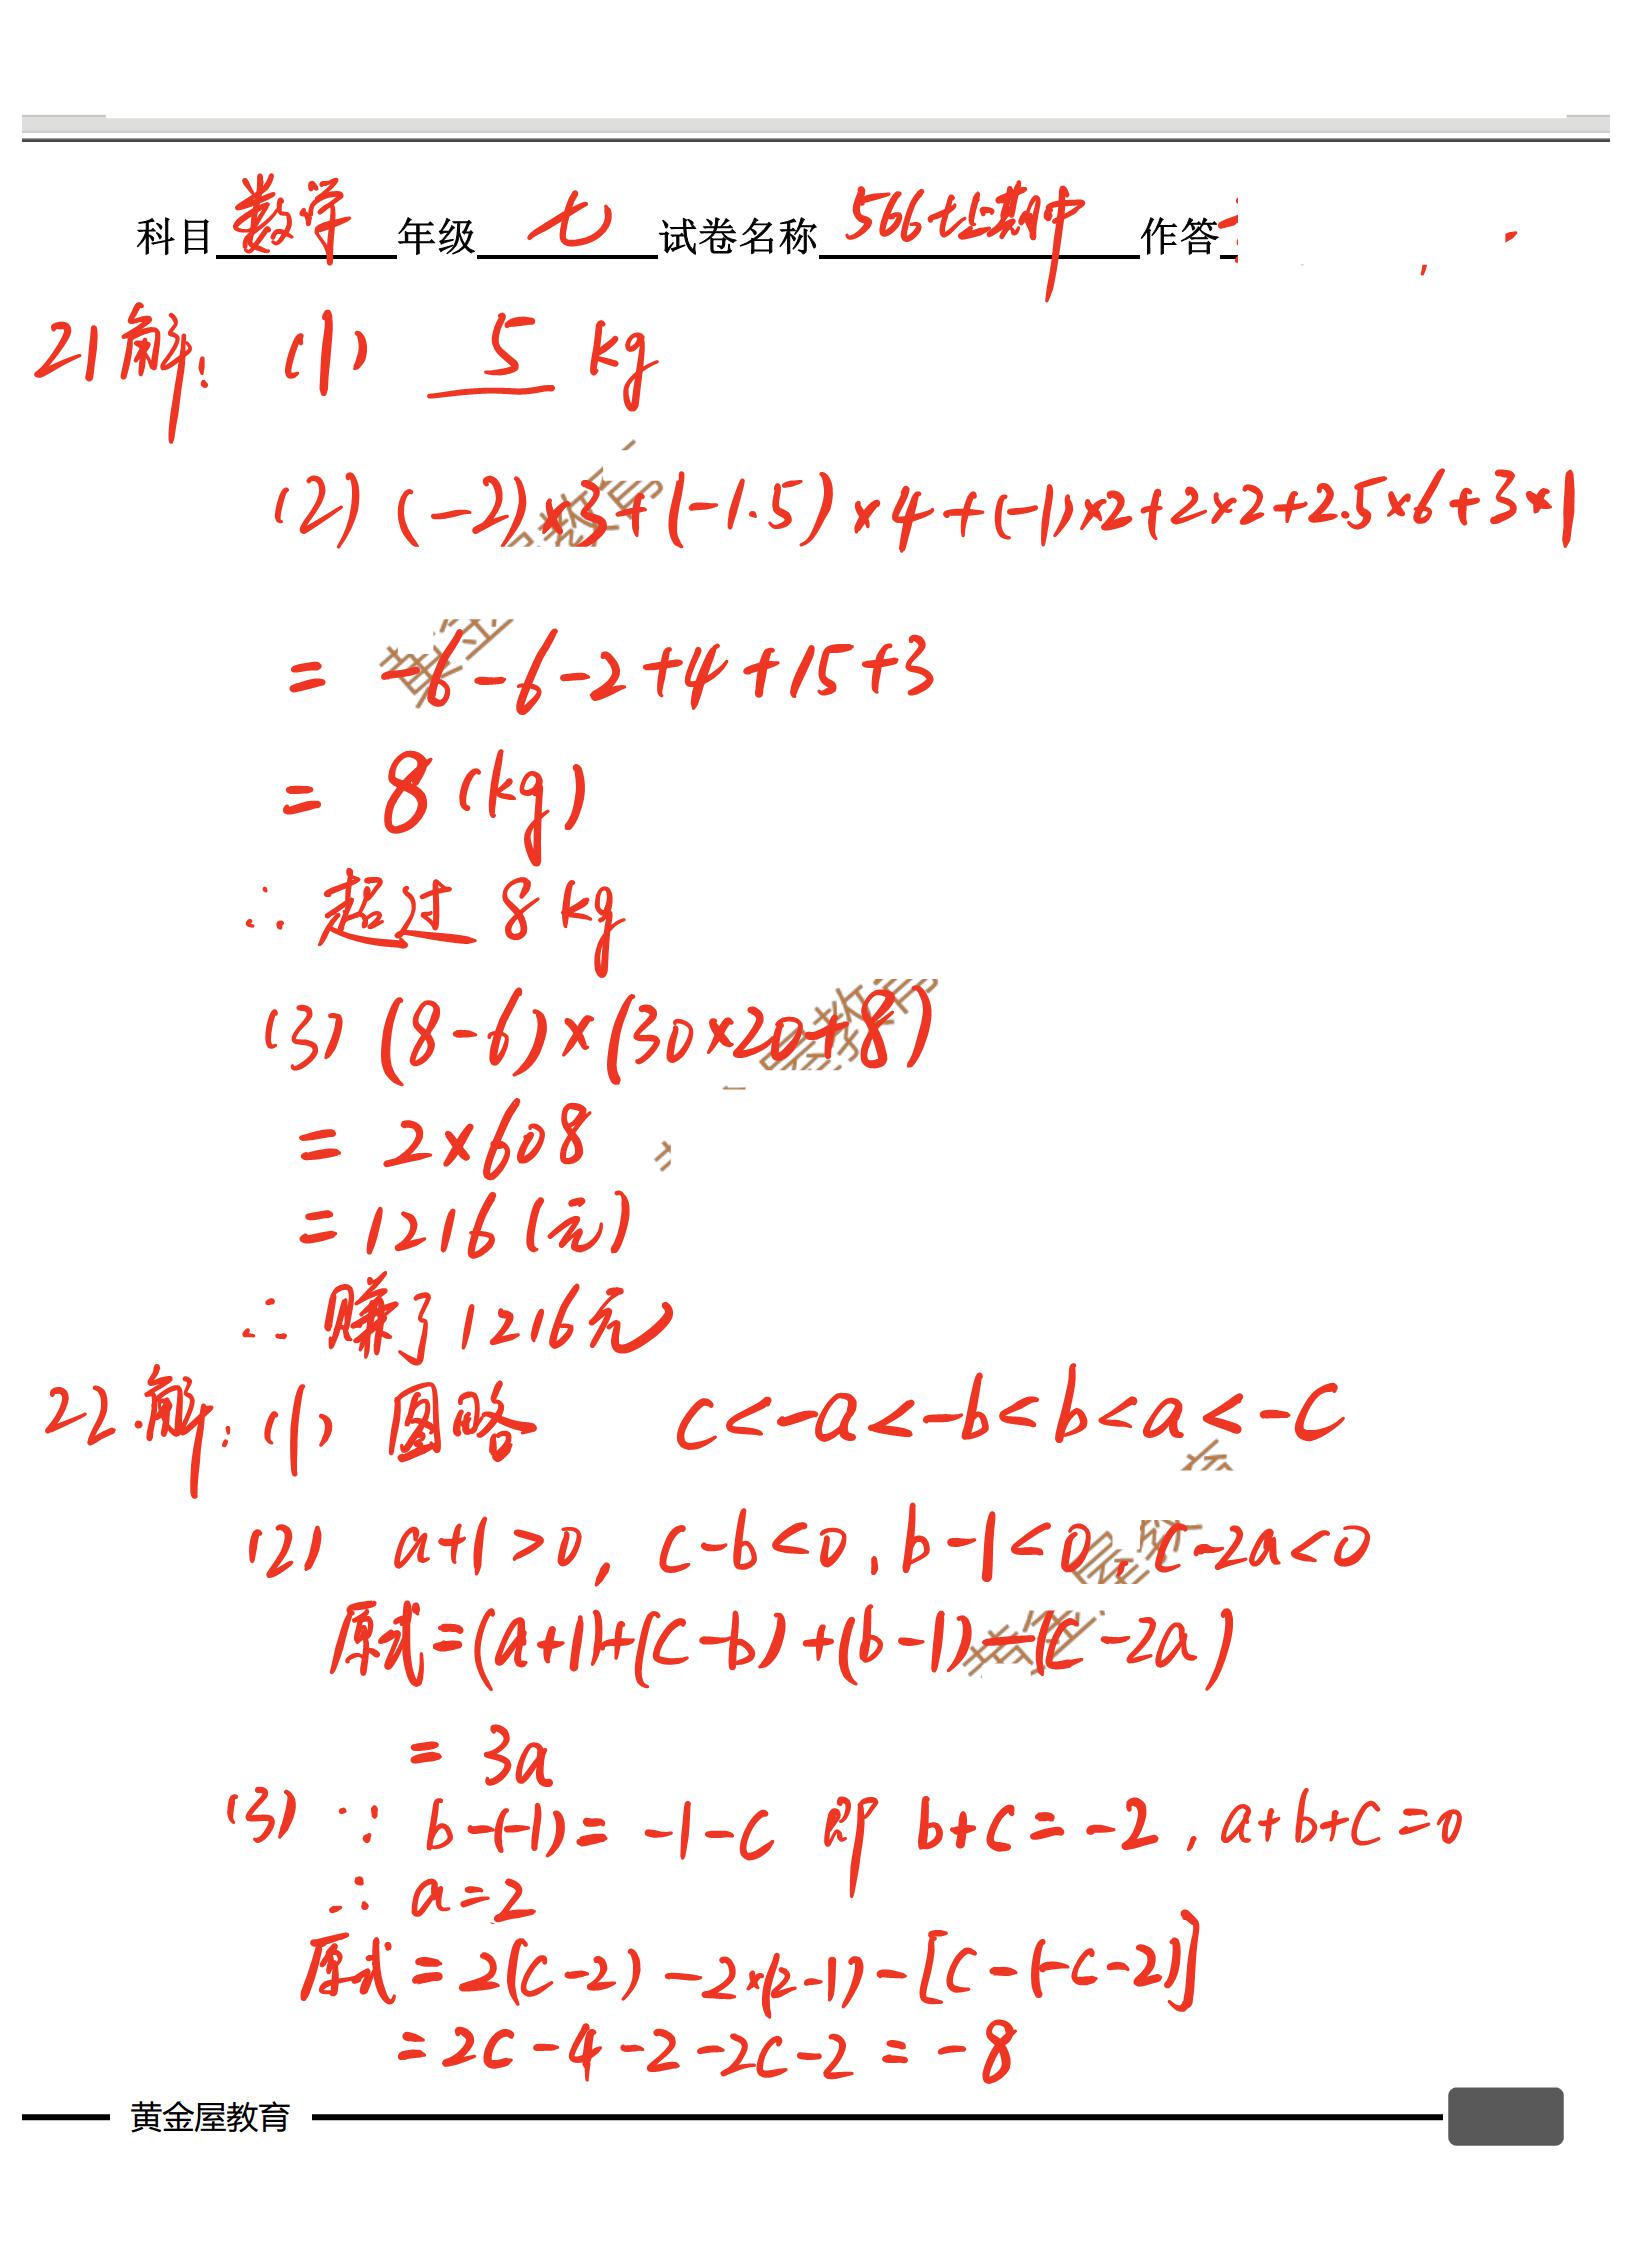 科目 数学 年级 七 试卷名称 566七上期中 作答
21解: (1) 5 kg
(2) (-2)×3+(-1.5)×4+(-1)×2+2×2+2.5×6+3×1
= -6-6-2+4+15+3
= 8 (kg)
∴ 超过 8 kg
(3) (8-6)×(30×20+8)
= 2×608
= 1216 (元)
∴ 赚了1216元
22.解: (1) 图略 c<-a<-b<b<a<-c
(2) a+1>0, c-b<0, b-1<0, c-2a<0
原式=(a+1)+(c-b)+(b-1)-(c-2a)
= 3a
(3) ∵ b-(-1)= -1-c 即 b+c=-2, a+b+c=0
∴ a=2
原式=2(c-2)-2×(2-1)-[c-(-c-2)]
=2c-4-2-2c-2=-8
黄金屋教育